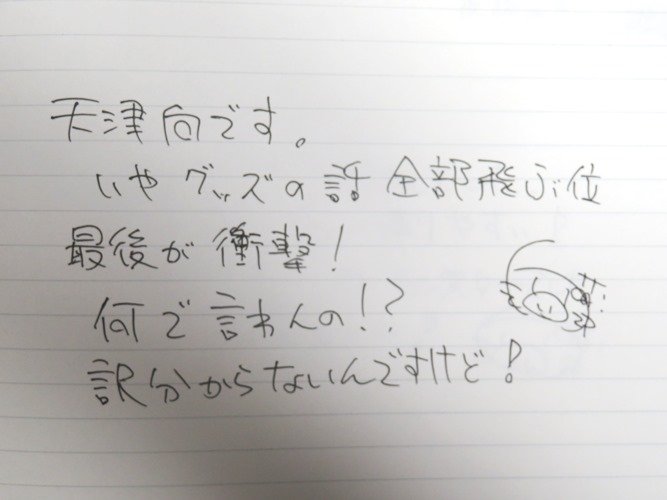 天津向です。
いやグッズの話全部飛ぶ位
最後が衝撃!
何で言わんの!?
訳分からないんですけど!